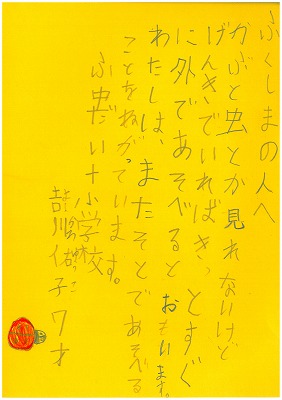 ふくしまの人へ
かぶと虫とか見れないけど
げんきでいればきっとすぐ
に外であそべるとおもいます。
わたしは、またそとであそべる
ことをねがっています。
ふ中だい十小学校
吉川佑子 7才